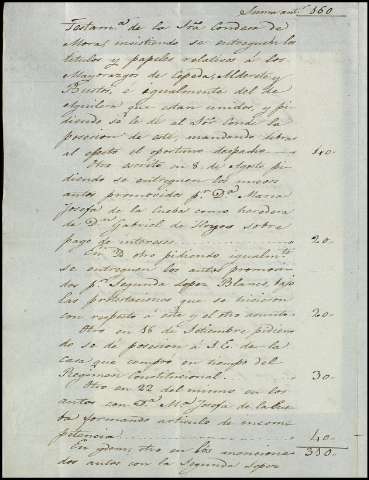 Suma antr. 160
Testamª. de la Srª. Condesa de
Mora, insistiendo se entreguen los
titulos y papeles relativos á los
Mayorazgos de Cepeda, Alderete y
Bustos, é igualmente del de
Aguilera que estan unidos, y pi-
diendo se le dé al Sor. Conde la
posesion de este, mandando librar
al efecto el oportuno despacho 40.
Otro escrito en 8. de Agosto pi-
diendo se entreguen los nuevos
autos promovidos pr. Dª. Maria
Josefa de la Cueba como heredera
de Dn. Gabriel de sobre
pago de intereses 20.
En otro pidiendo igualmte.
se entreguen los autos promovi-
dos pr. Segunda Lopez Blanco, bajo
las protestaciones que se hicieron
con respecto á este y el otro asunto 20.
Otro en 16 de Setiembre pidien-
do se dé posesion á S.E. de la
casa que compró en tiempo del
Regimen Constitucional 30.
Otro en 22 del mismo en los
autos con Dª. Mª. Josefa de la Cue-
ba formando articulo de incom-
petencia 40.
310.
En ydem, otro en los menciona-
dos autos con la Segunda Lopez